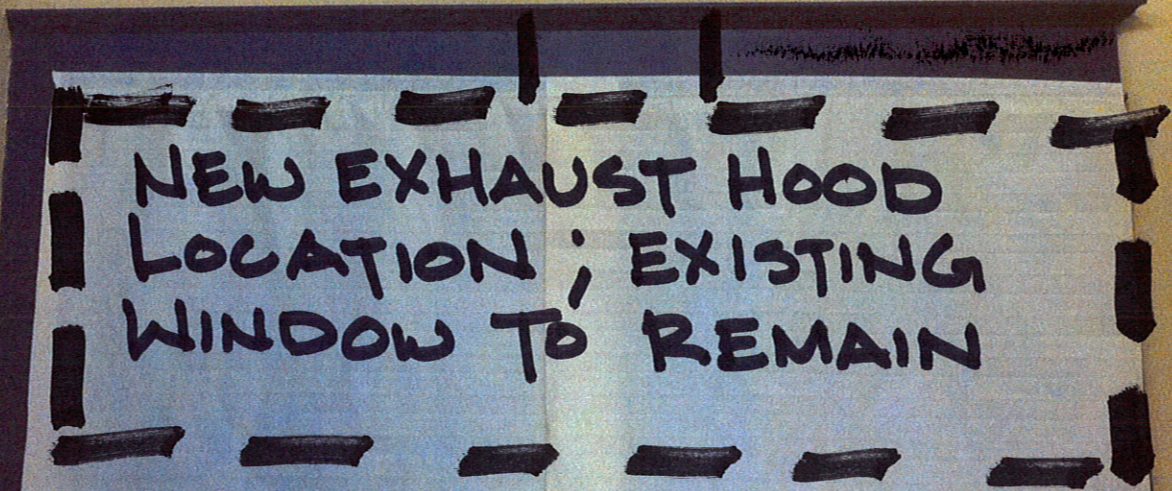 NEW EXHAUST HOOD
LOCATION ; EXISTING
WINDOW TO REMAIN